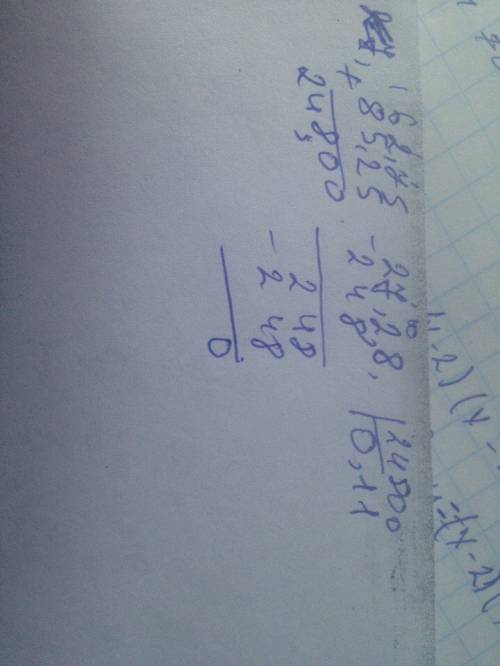 162,75
+ 85,25
248,00
27,28 248,00
- 248 0,11
248
- 248
0
-2)(x-
=(x-2)(